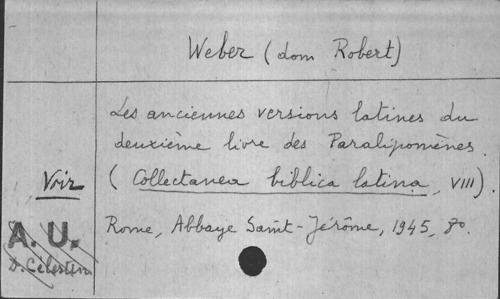 Weber (dom Robert)
Les anciennes versions latines du
deuxième livre des Paralipomènes.
(Collectanea biblica latina, VIII).
Voir
Rome, Abbaye Saint-Jérôme, 1945, 8o.
A. U.
D. Célestin